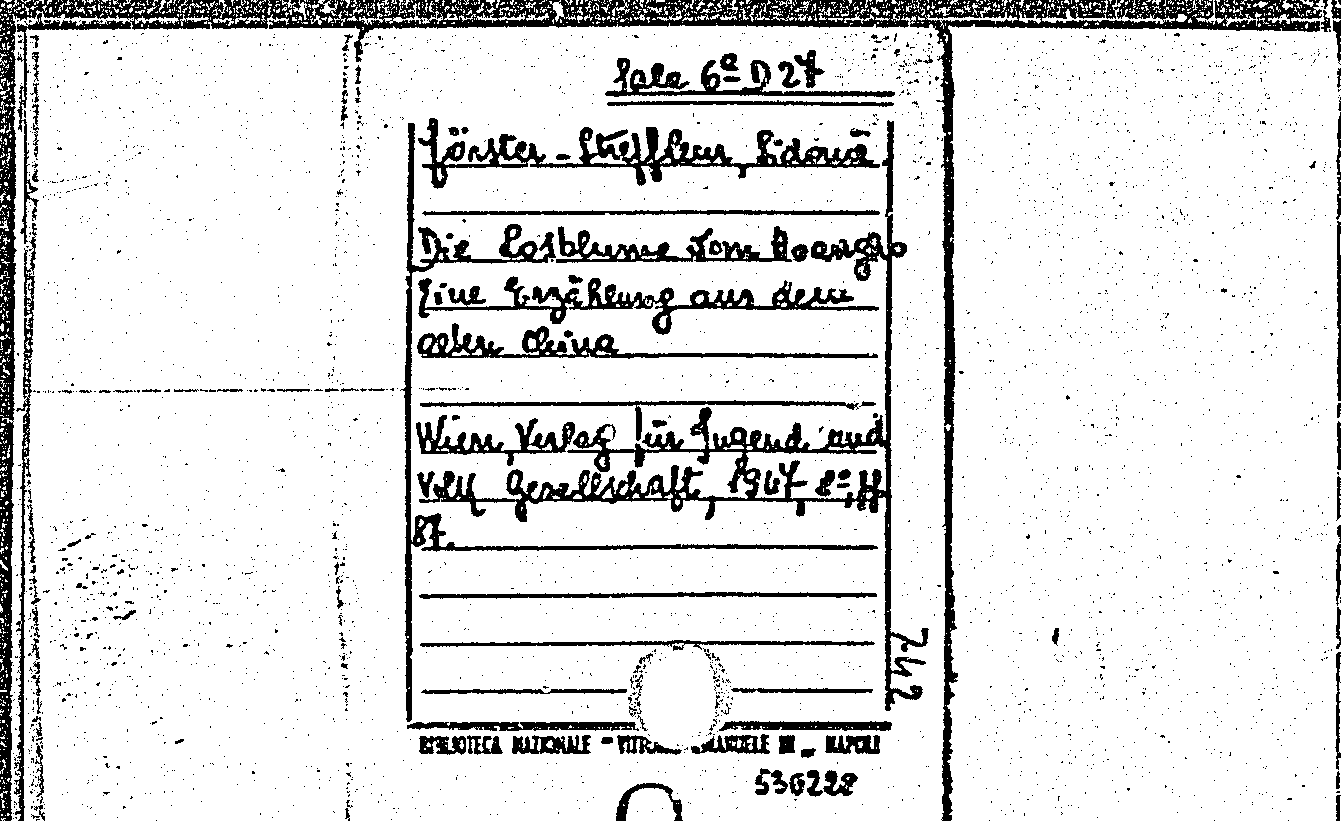 Sala 6ª D 27
Förster - Streffleur, Sidonie
Die Lotblume vom Hoangho
Eine Erzählung aus dem
alten China
Wien, Verlag für Jugend und
Volk Gesellschaft, 1947, 8º, pp.
87.
742
BIBLIOTECA NAZIONALE - VITTORIO EMANUELE III - NAPOLI
536228